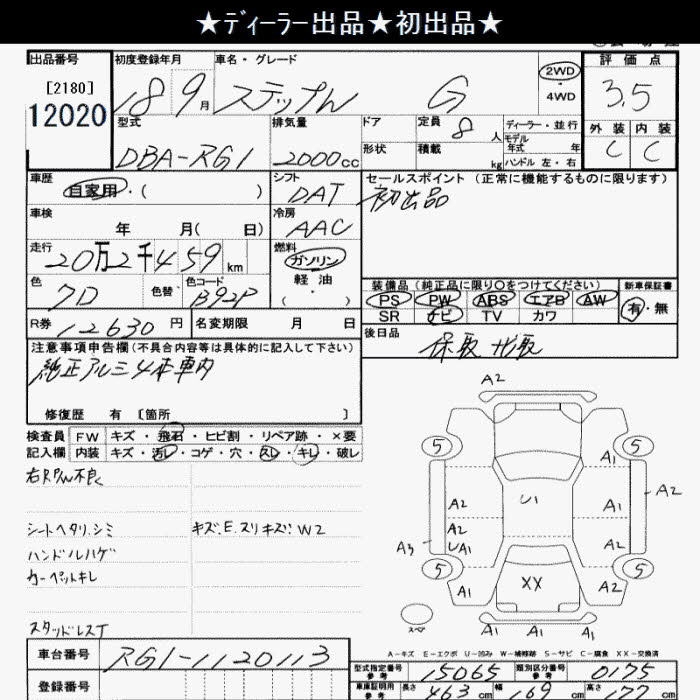 ★ディーラー出品★初出品★
出品番号 [2180] 12020
初度登録年月 18 9月
車名・グレード ステップW G
2WD・4WD
評価点 3.5
外装 内装
C C
型式 DBA-RG1
排気量 2000cc
ドア
形状
定員 8人
積載 kg
ディーラー・並行
モデル年式 年
ハンドル 左・右
車歴 自家用・( )
シフト DAT
セールスポイント (正常に機能するものに限ります)
初出品
車検 年 月( 日)
冷房 AAC
走行 20万2千459km
燃料 ガソリン
軽油
・( )
色 色替 色コード B92P
装備品 (純正品に限り○をつけてください) 新車保証書
PS PW ABS エアB AW 有・無
SR ナビ TV カワ
R券 12630円 名変期限 月 日
後日品 保取 ナビ取
注意事項申告欄(不具合内容等は具体的に記入して下さい)
純正アルミ4本車内
修復歴 有 [箇所 ]
検査員記入欄 FW キズ・飛石・ヒビ割・リペア跡・×要
内装 キズ・汚レ・コゲ・穴・スレ・キレ・破レ
シートヘタリ.シミ キズ.E.スリキズ.W2
ハンドルハゲ
カーペットキレ
スタッドレスT
A2
5 5
A1
A2 U1 A1 A2
A2
UA1
A3 A2
5 5
A1 XX A1
A1 A1 A1
スペア
A-キズ E-エクボ U-凹み W-補修跡 S-サビ C-腐食 XX-交換済
車台番号 RG1-1120113
型式指定番号 参考 15065 類別区分番号 参考 0175
登録番号
車庫証明用 参考 長さ 463cm 幅 169cm 高さ 177cm